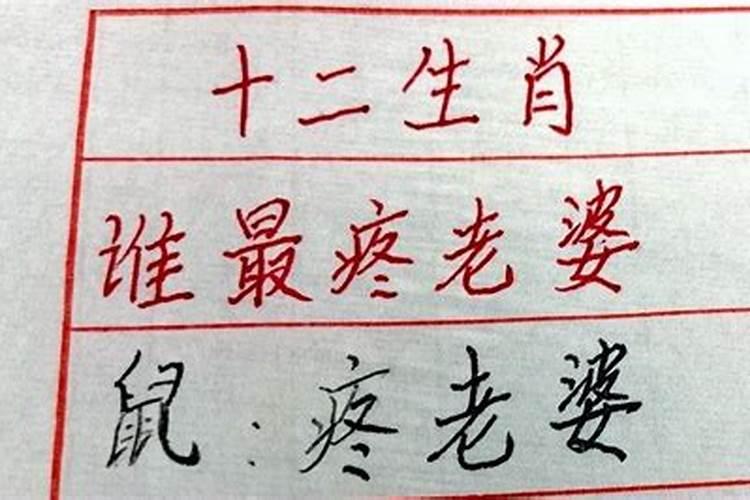 十二生肖
谁最疼老婆
鼠：疼老婆